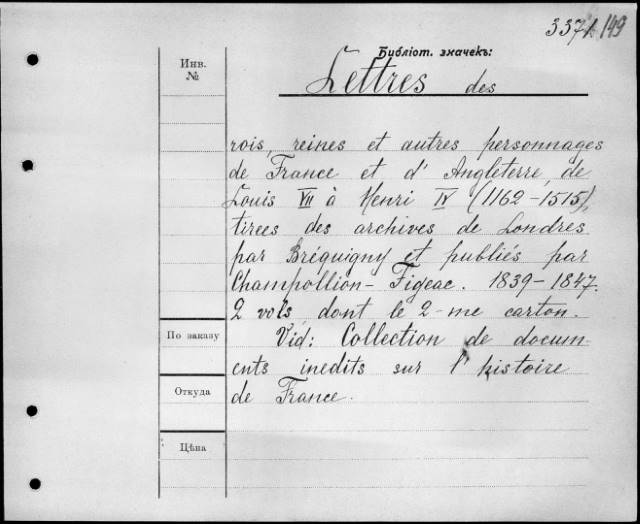 337/149
Библіот. значекъ:
Инв.
№
Lettres des
rois, reines et autres personnages
de France et d'Angleterre, de
Louis VII à Henri IV (1162-1515),
tirees des archives de Londres
par Bréquigny et publiés par
Champollion-Figeac. 1839-1847.
2 vols, dont le 2-me carton.
По заказу
Vid: Collection de docum-
ents inedits sur l'histoire
Откуда
de France.
Цѣна